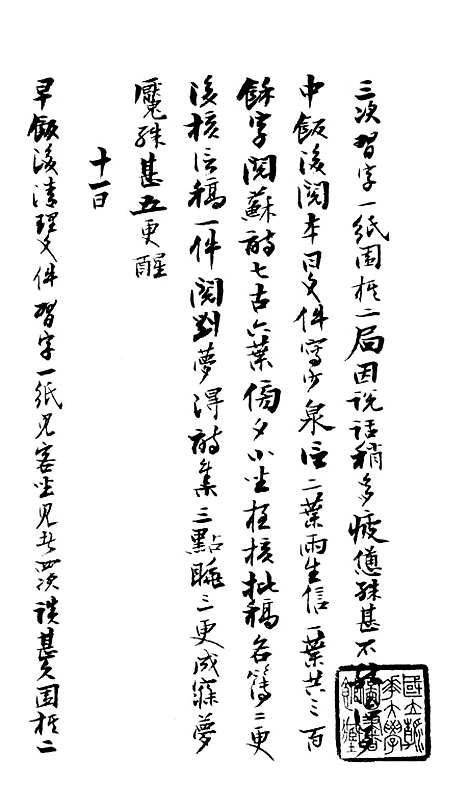 三次習字一紙圍棋二局因說話稍多疲憊殊甚不
中飯後閱本日文件寫少泉信二葉雨生信一葉共三百
餘字閱蘇詩七古六葉傍夕小坐夜核批稿各簿二更
後核信稿一件閱劉夢得詩集三點睡三更成寐夢
魘殊甚五更醒
十一日
早飯後清理文件習字一紙見客坐見者四次談甚久圍棋二